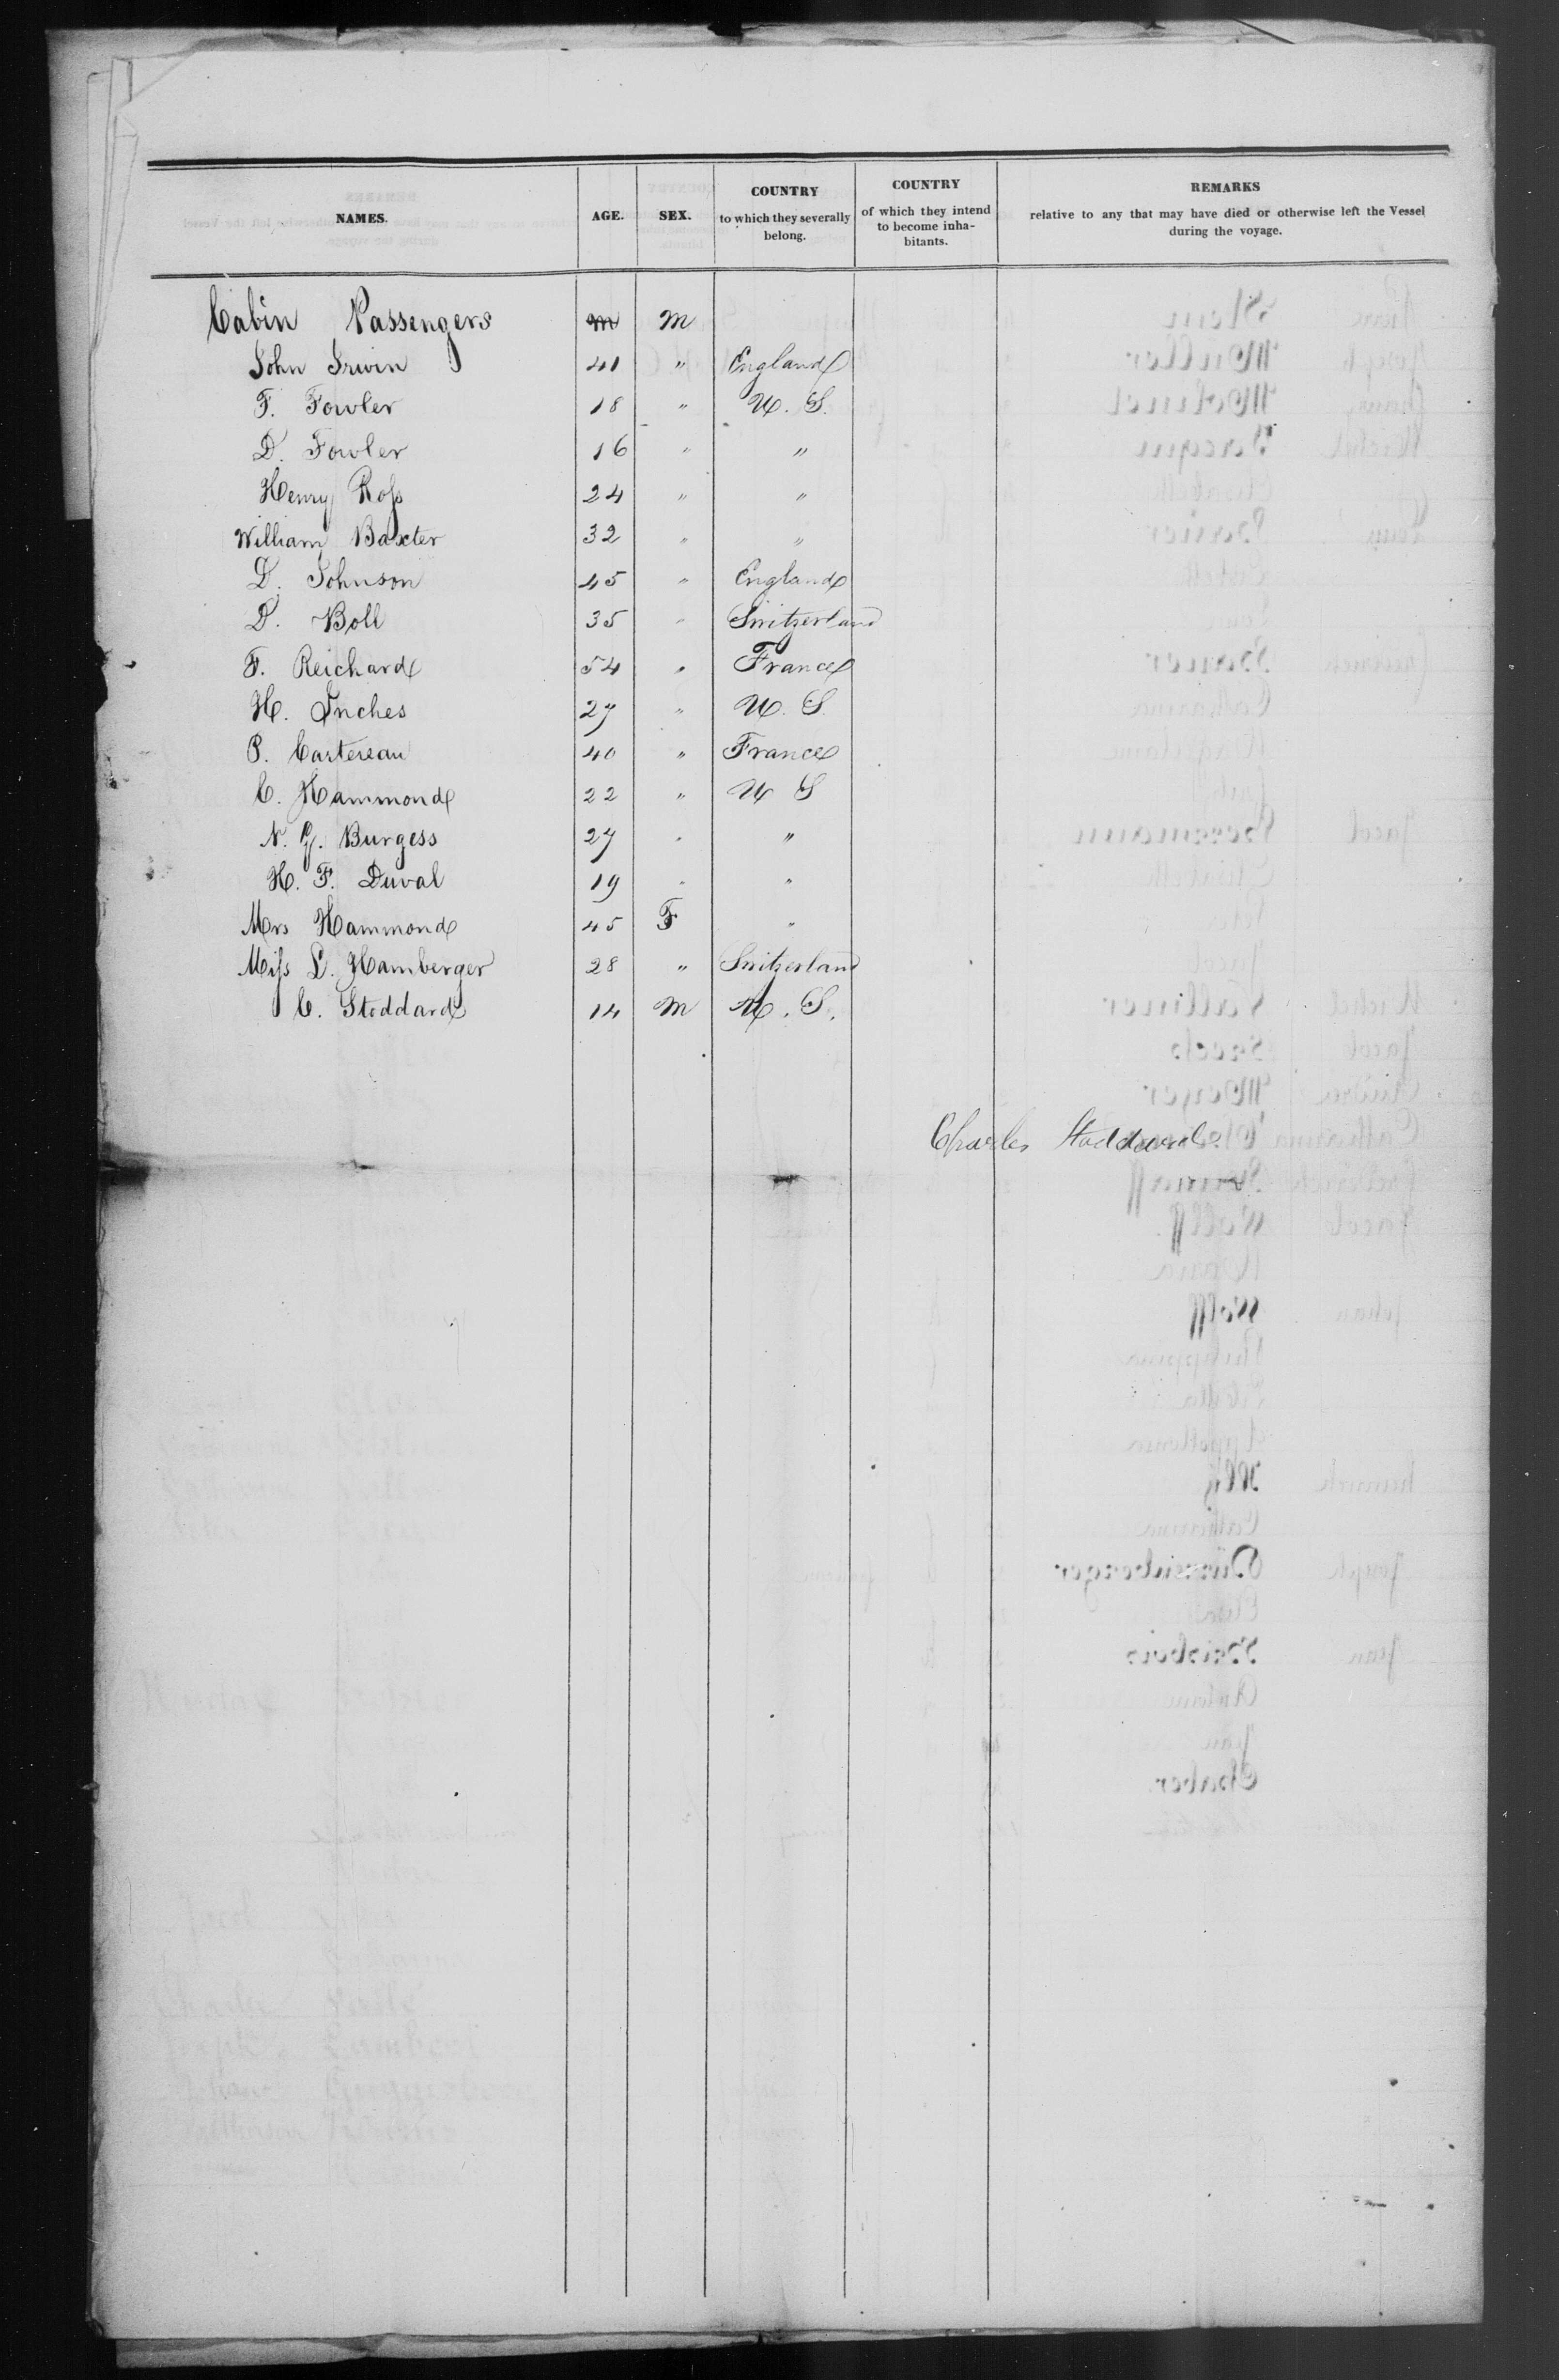 NAMES. AGE. SEX. COUNTRY to which they severally belong. COUNTRY of which they intend to become inhabitants. REMARKS relative to any that may have died or otherwise left the Vessel during the voyage.
Cabin Passengers m m
John Irwin 41 " England
F. Fowler 18 " U. S.
D. Fowler 16 " "
Henry Ross 24 " "
William Baxter 32 " "
D. Johnson 45 " England
D. Boll 35 " Switzerland
F. Reichard 54 " France
H. Inches 27 " U. S.
P. Cartereau 40 " France
C. Hammond 22 " U S
N. G. Burgess 27 " "
H. F. Duval 19 " "
Mrs Hammond 45 F "
Miss L. Hamberger 28 " Switzerland
C. Stoddard 14 m U. S.
Charles Stoddard